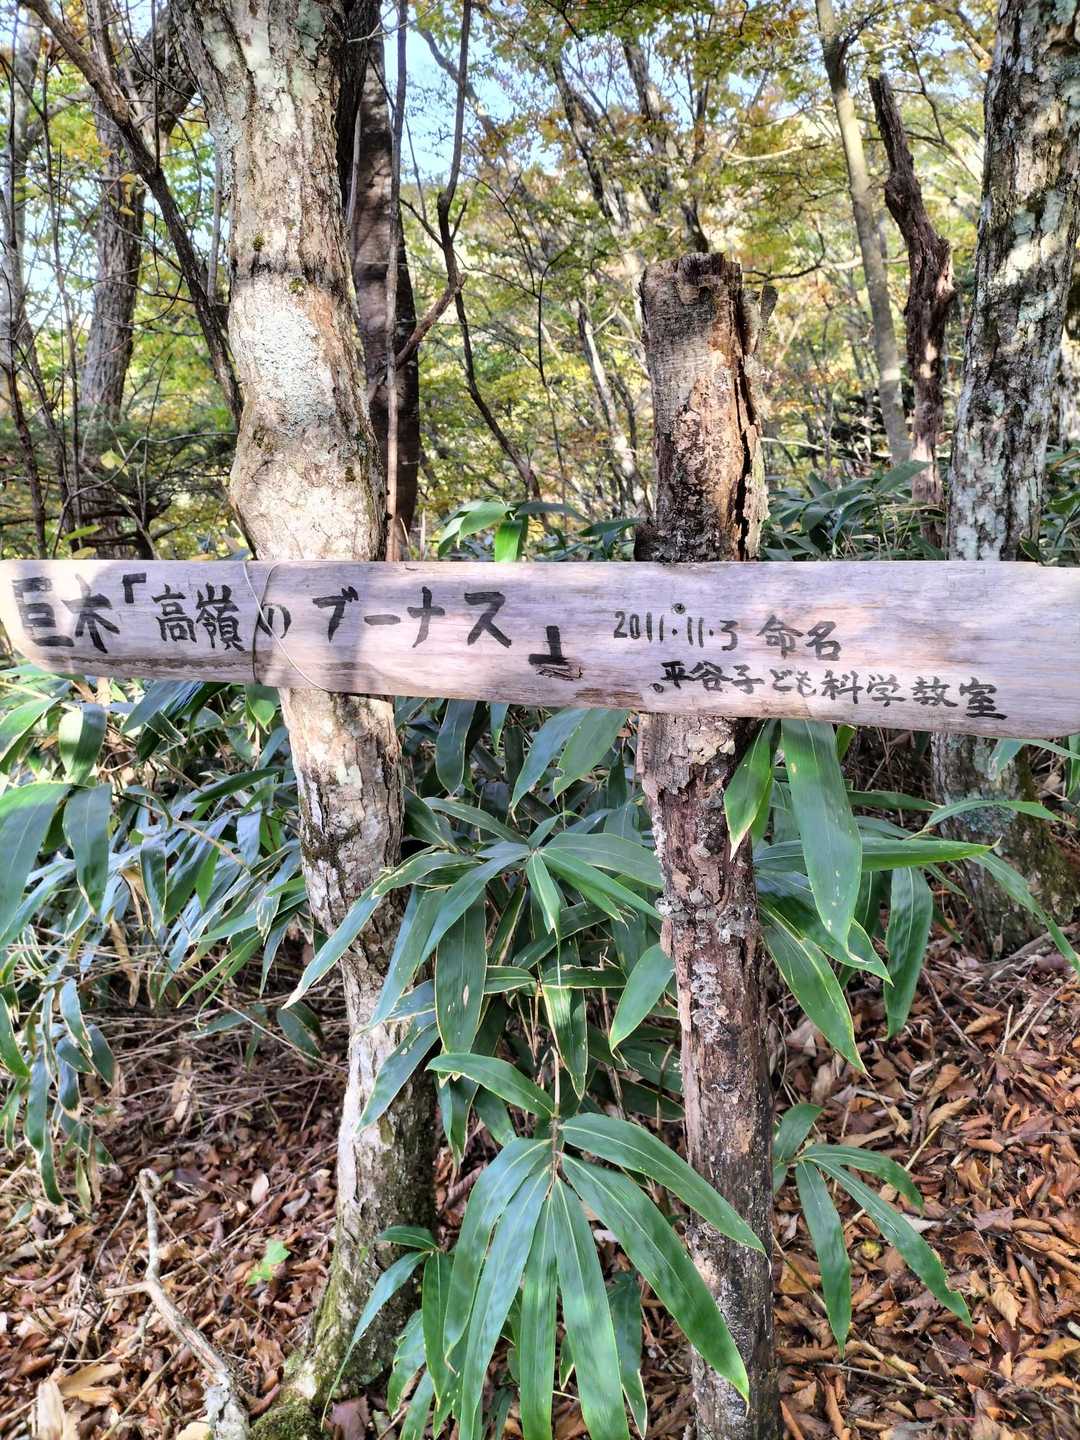 巨木「高嶺のブーナス」
2011.11.3 命名
平谷子ども科学教室